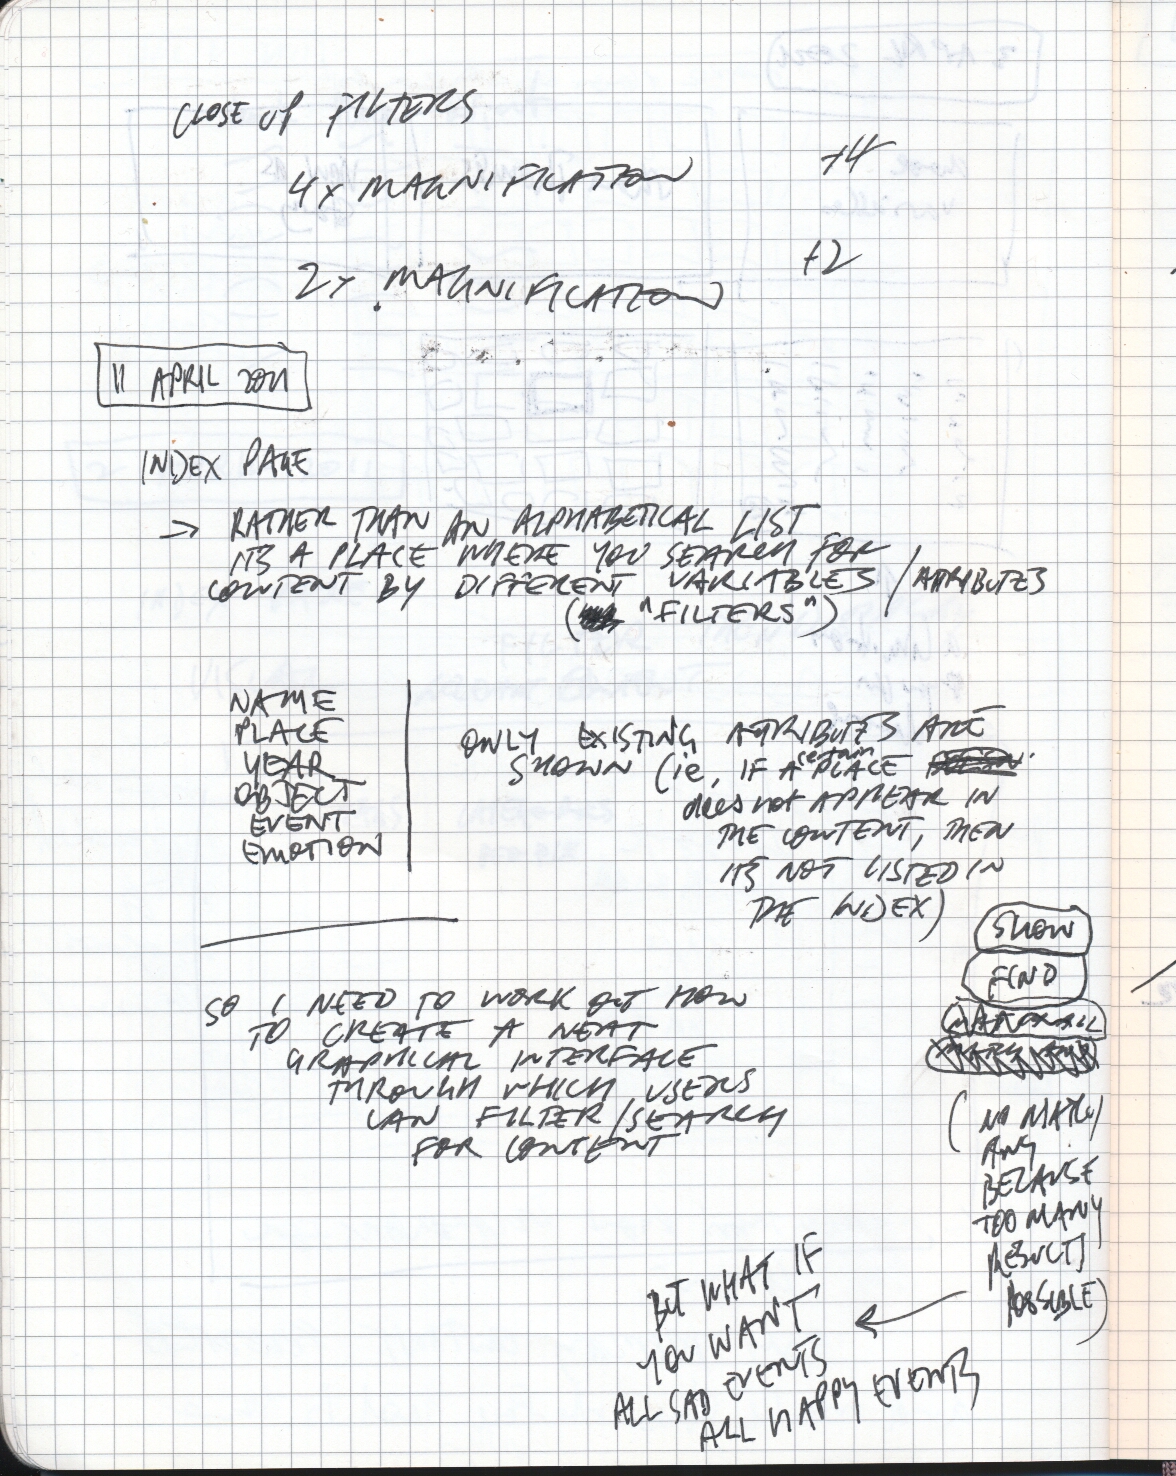 CLOSE UP FILTERS
4x MAGNIFICATION +4
2x MAGNIFICATION +2
11 APRIL 2021
INDEX PAGE
→ RATHER THAN AN ALPHABETICAL LIST
ITS A PLACE WHERE YOU SEARCH FOR
CONTENT BY DIFFERENT VARIABLES / ATTRIBUTES
( "FILTERS")
NAME
PLACE
YEAR
OBJECT
EVENT
EMOTION
ONLY EXISTING ATTRIBUTES ARE
SHOWN (ie, IF A certain PLACE
does not APPEAR IN
THE CONTENT, THEN
ITS NOT LISTED IN
THE INDEX)
SHOW
FIND
SO I NEED TO WORK OUT HOW
TO CREATE A NEAT
GRAPHICAL INTERFACE
THROUGH WHICH USERS
CAN FILTER/SEARCH
FOR CONTENT
(NO MATCH
ANY
BECAUSE
TOO MANY
RESULTS
POSSIBLE)
BUT WHAT IF
YOU WANT
ALL SAD EVENTS
ALL HAPPY EVENTS